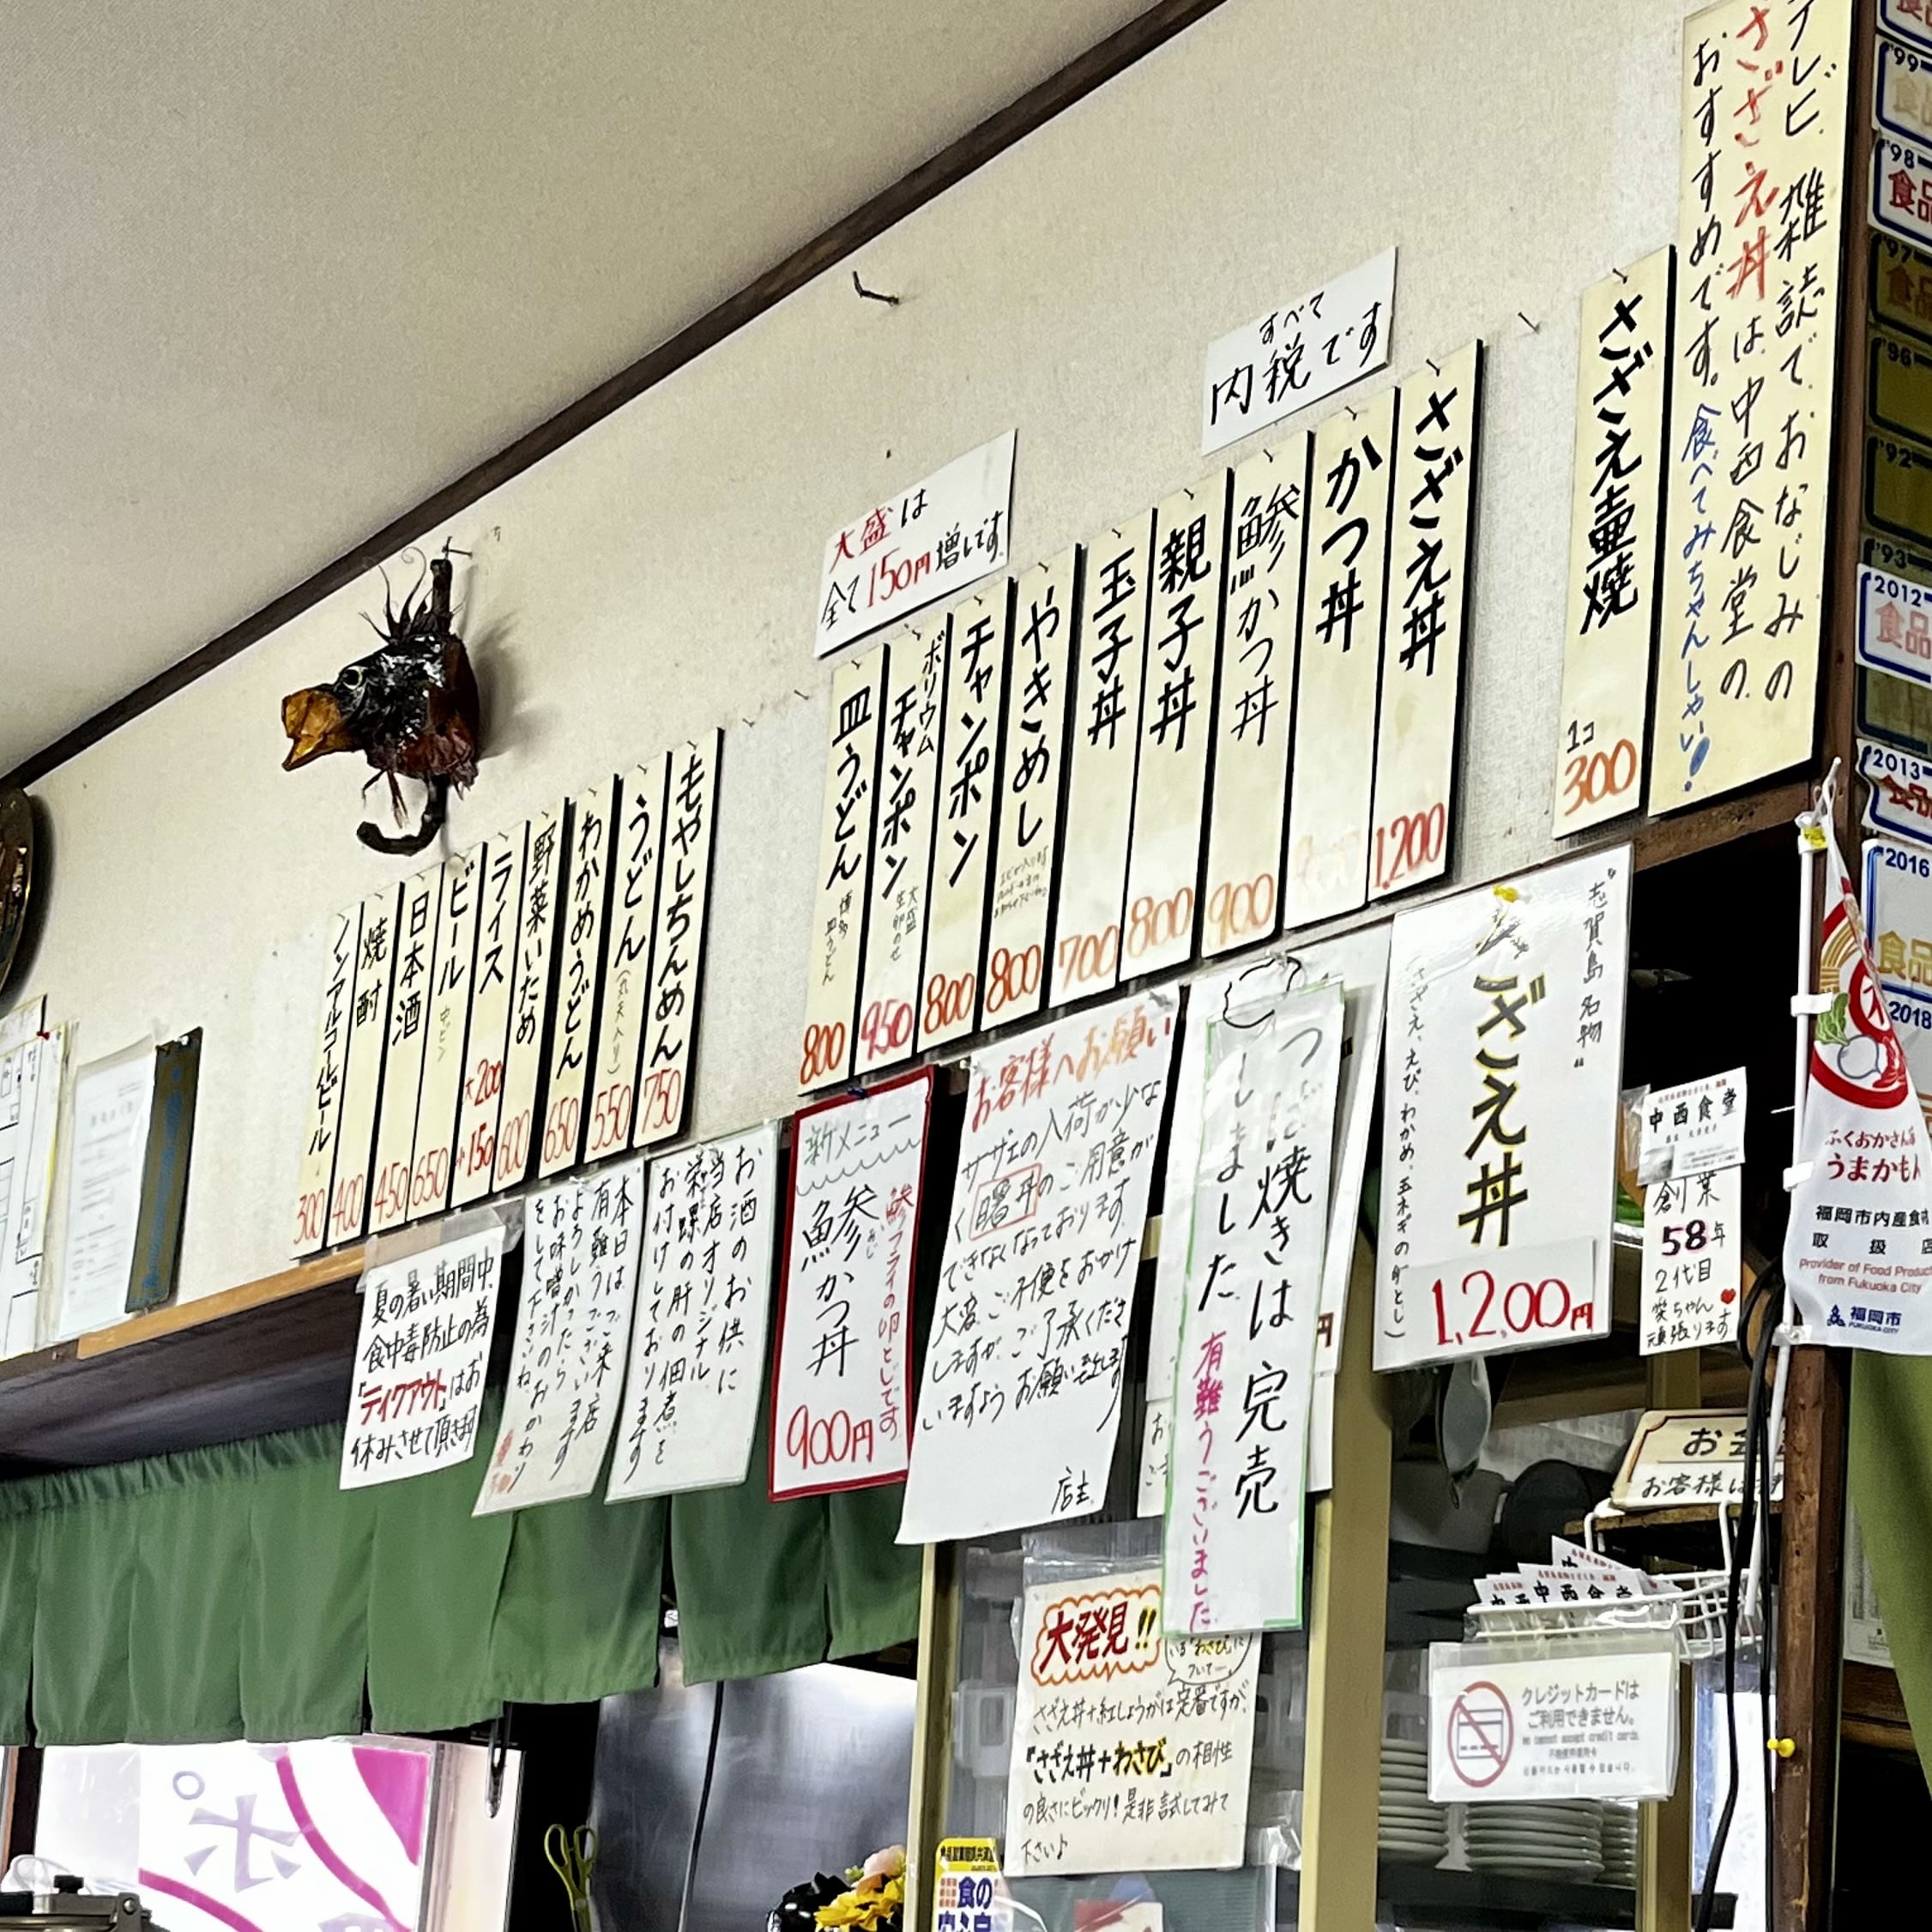 テレビ、雑誌で、おなじみの
さざえ丼は、中西食堂の
おすすめです。食べてみちゃんしゃい!
さざえ壷焼
1コ
300
すべて
内税です
さざえ丼
1,200
かつ丼
鯵かつ丼
900
親子丼
800
玉子丼
700
やきめし
800
チャンポン
800
ボリウム
チャンポン
大盛
生卵のせ
950
皿うどん
博多
皿うどん
800
大盛は
全て150円増しです
もやしちゃんめん
750
うどん
(丸天入り)
550
わかめうどん
650
野菜いため
600
ライス
大200
小150
ビール
中ビン
650
日本酒
450
焼酎
400
ノンアルコールビール
300
"志賀島名物"
さざえ丼
(さざえ、えび、わかめ、玉ネギの卵とじ)
1,200円
中西食堂
創業
58年
2代目
笑ちゃん
頑張ります
つぼ焼きは完売
しました
有難うございました
お客様へお願い
サザエの入荷が少な
く曙丼のご用意が
できなくなっております
大変ご不便をおかけ
しますが、ご了承くださ
いますよう お願い致します
店主
新メニュー
鯵かつ丼
あじ
鯵フライの卵とじです
900円
お酒のお供に
当店オリジナル
栄螺の肝の佃煮を
お付けしております
本日はご来店
有難うございます
よろしかったら
お味噌汁のおかわり
をして下さいね
夏の暑い期間中、
食中毒防止の為
『テイクアウト』はお
休みさせて頂きます
大発見!!
いる「わさび」に
ついて
さざえ丼+紅しょうがは定番ですが、
『さざえ丼+わさび』の相性
の良さにビックリ!是非試してみて
下さい♪
クレジットカードは
ご利用できません。
We cannot accept credit cards.
お客様は
中西食堂
ふくおかさん家
うまかもん
福岡市内産食材
取扱店
Provider of Food Products
from Fukuoka City
福岡市
FUKUOKA CITY
'99
'98
食品
'97
'96
'92
'93
2012
食品
2013
2016
食品
2018
食の
ポ